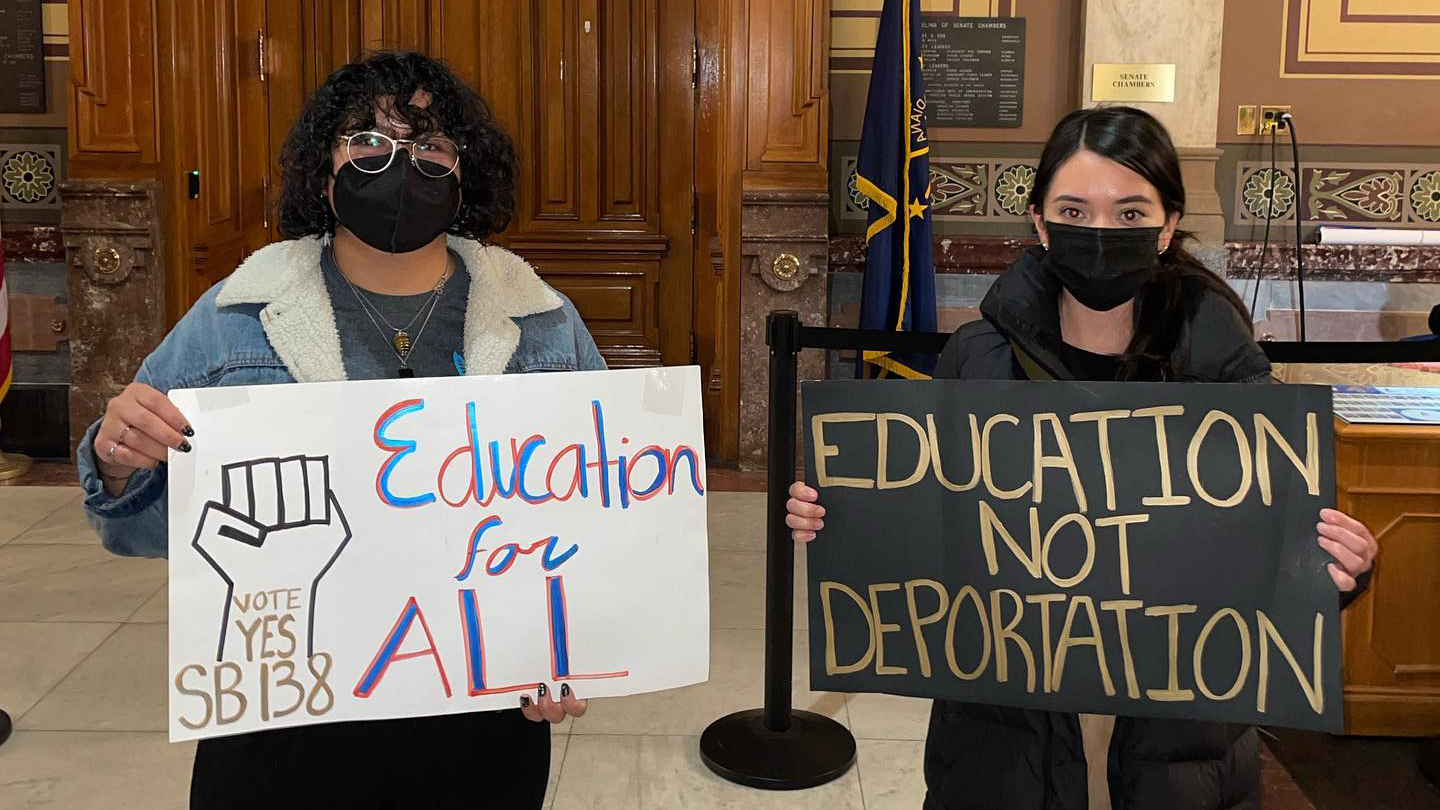 Education
for
ALL
VOTE
YES
SB 138
EDUCATION
NOT
DEPORTATION
SENATE
CHAMBERS
OF SENATE CHAMBERS
LEADERS